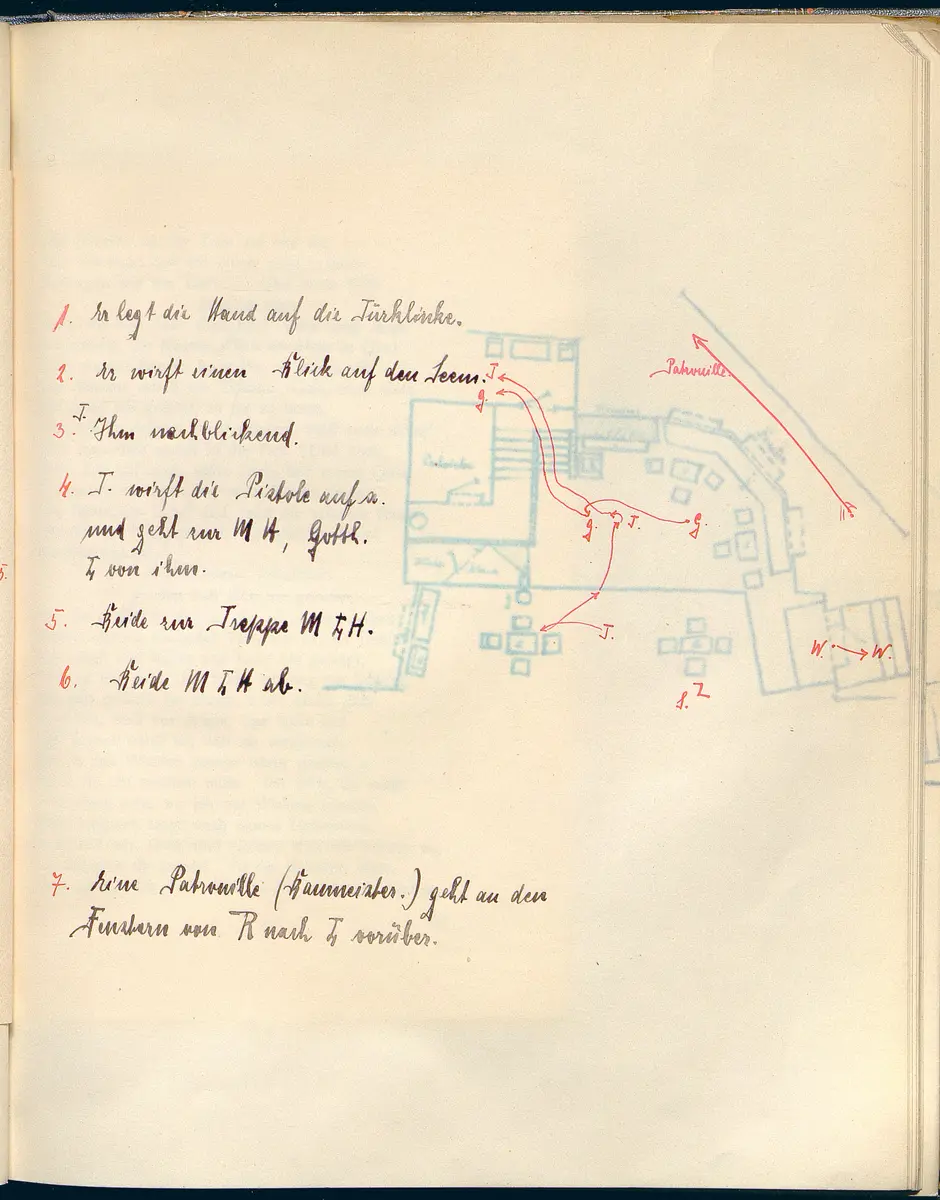 1. Er legt die Hand auf die Türklinke.
2. Er wirft einen Blick auf den Seem.
T.
3. Ihm nachblickend.
4. T. wirft die Pistole auf x.
und geht zur M H, Gotth.
L von ihm.
5. Beide zur Treppe M L H.
6. Beide M L H ab.
7. Eine Patrouille (Baumeister.) geht an den
Fenstern von R nach L vorüber.
Patrouille.
T.
g.
g.
T.
G.
T.
W.
W.
S.
5.